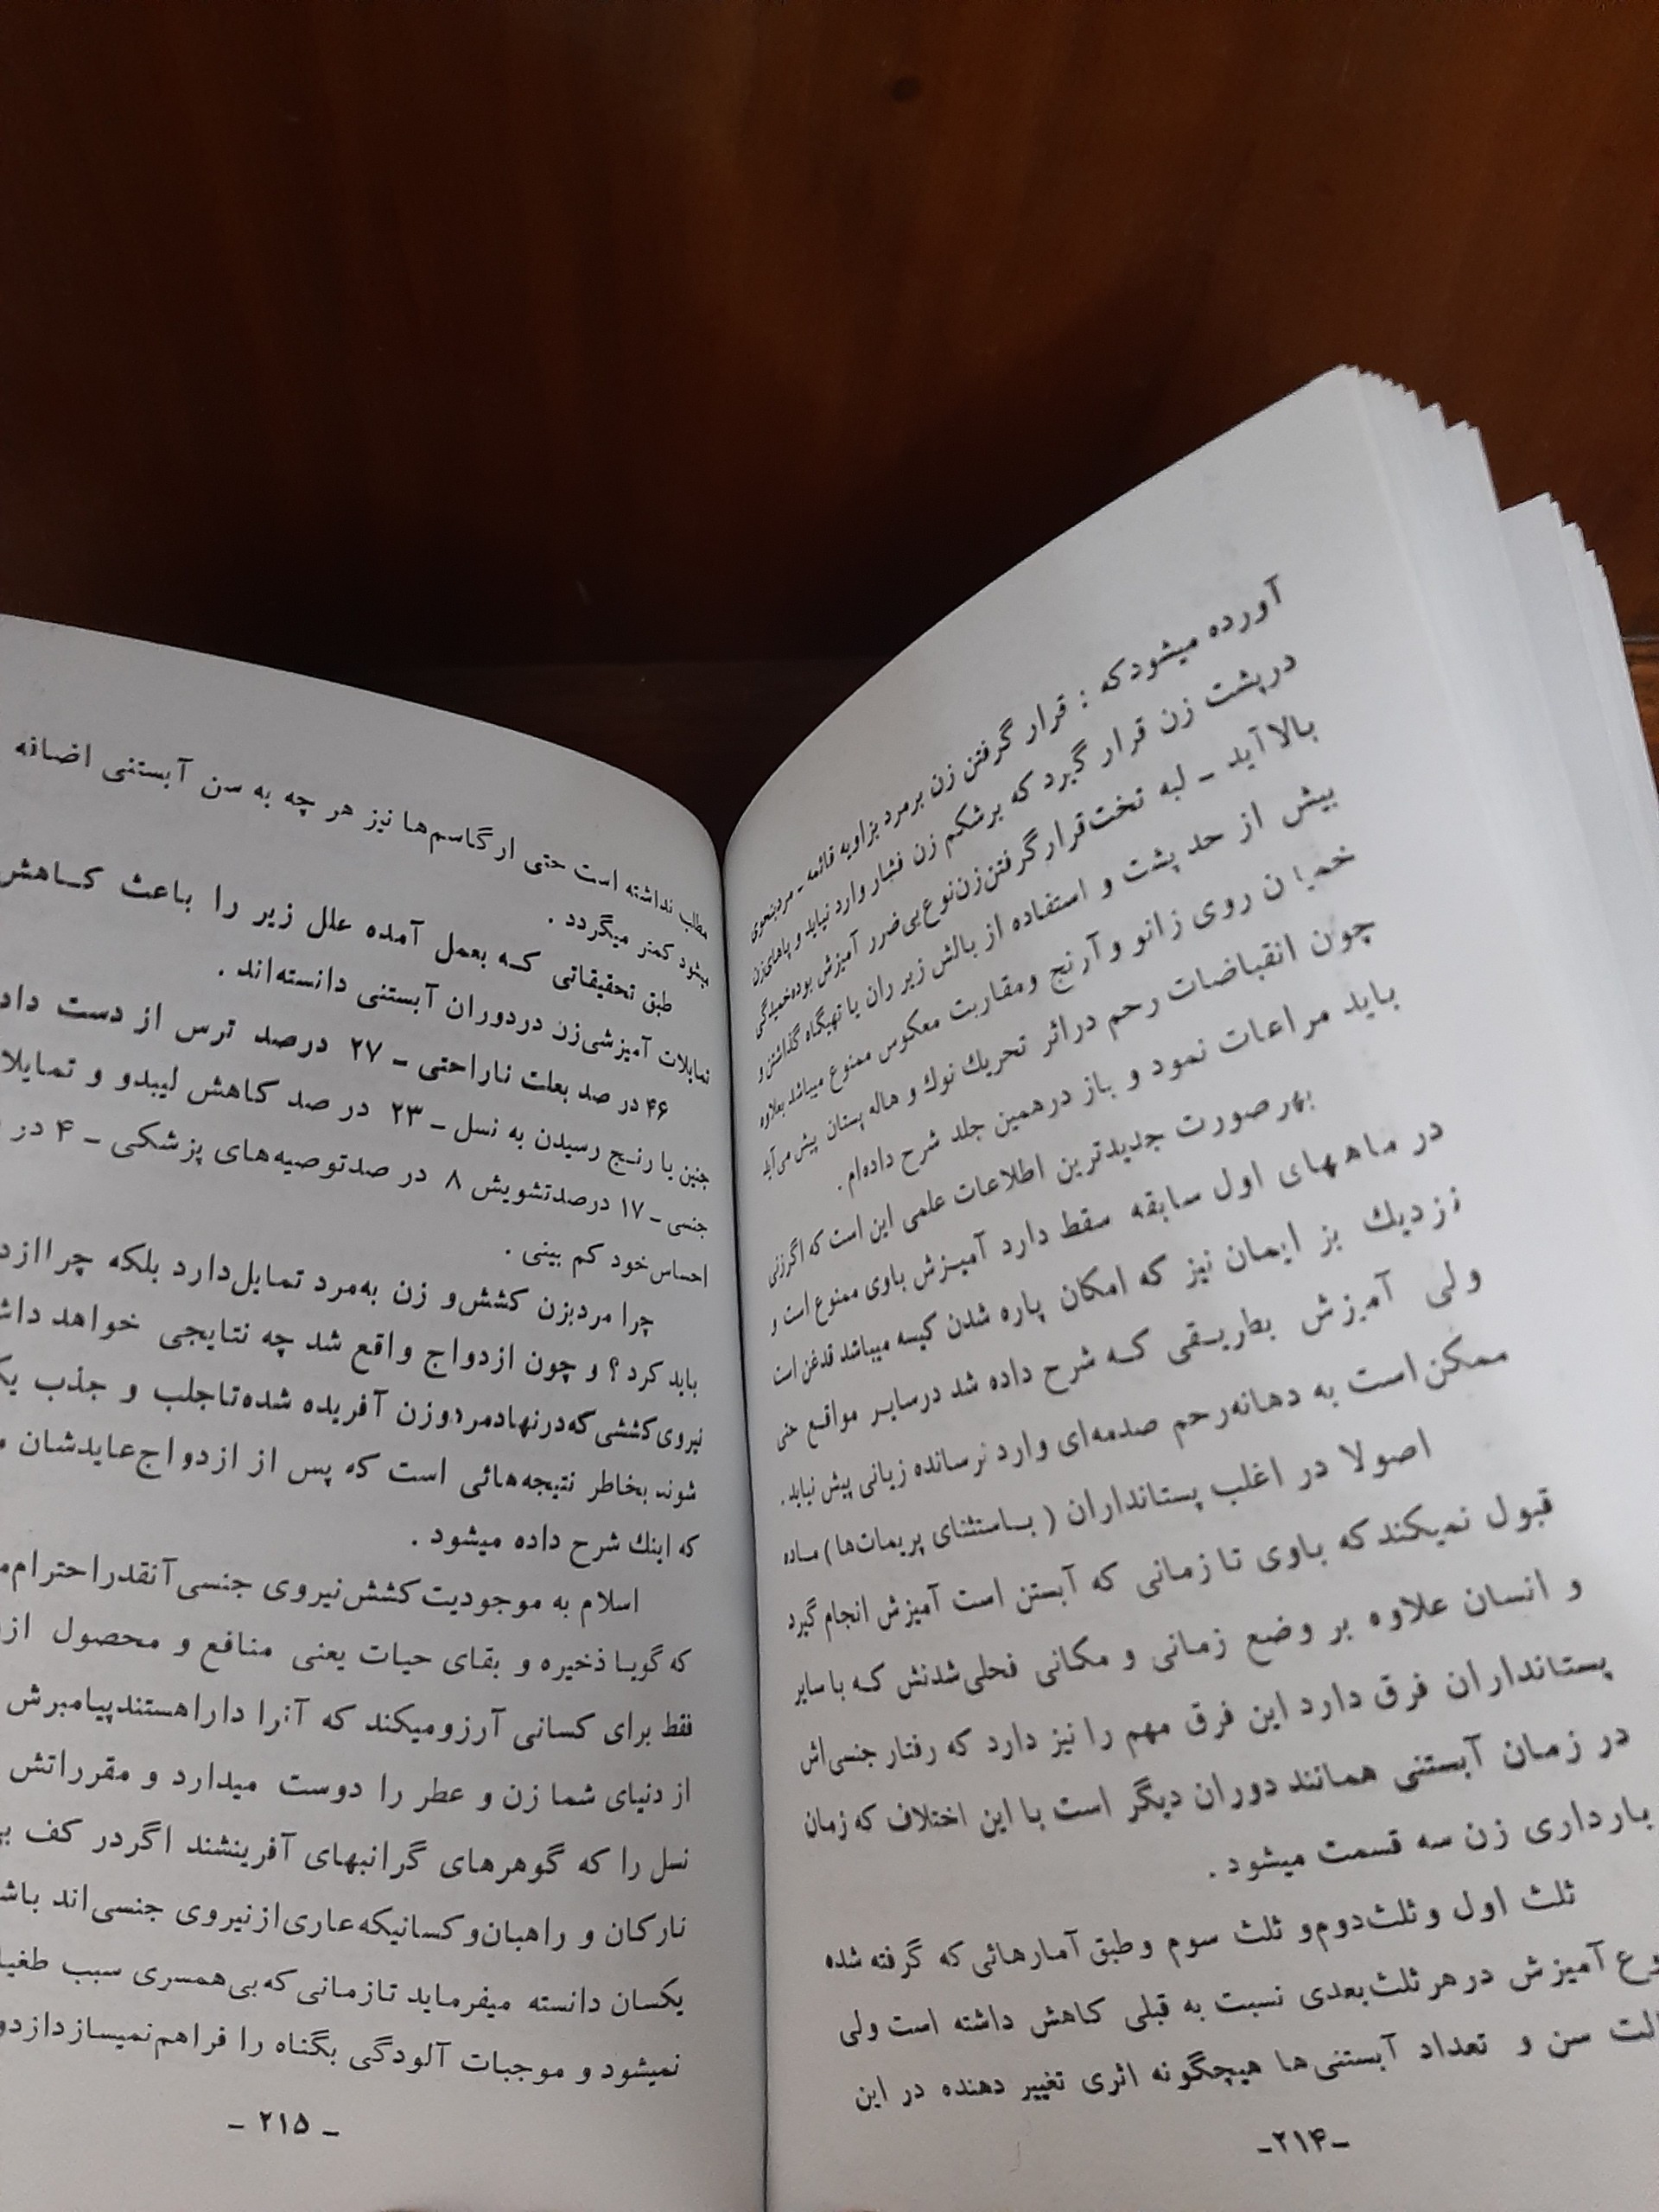 آورده میشود که : قرار گرفتن زن بر مرد بزاویه قائمه ـ مرد بنحوی
در پشت زن قرار گیرد که بر شکم زن فشار وارد نیاید و پاهای زن
بالا آید ـ لبه تخت قرار گرفتن زن نوع بی ضرر آمیزش بوده خمیدگی
بیش از حد پشت و استفاده از بالش زیر ران یا تهیگاه گذاشتن و
خمیان روی زانو و آرنج و مقاربت معکوس ممنوع میباشد بعلاوه
چون انقباضات رحم در اثر تحریك نوك و هاله پستان پیش می‌آید
باید مراعات نمود و باز در همین جلد شرح داده‌ام.
بهر صورت جدیدترین اطلاعات علمی این است که اگر زنی
در ماههای اول سابقه سقط دارد آمیزش با وی ممنوع است و
نزدیك بز ایمان نیز که امکان پاره شدن کیسه میباشد قدغن است
ولی آمیزش بطریقی که شرح داده شد در سایر مواقع حتی
ممکن است به دهانه رحم صدمه‌ای وارد نرسانده زیانی پیش نیاید.
اصولا در اغلب پستانداران ( باستثنای پریمات‌ها ) ماده
قبول نمیکند که با وی تا زمانی که آبستن است آمیزش انجام گیرد
و انسان علاوه بر وضع زمانی و مکانی فحلی شدنش که با سایر
پستانداران فرق دارد این فرق مهم را نیز دارد که رفتار جنسی‌اش
در زمان آبستنی همانند دوران دیگر است با این اختلاف که زمان
بارداری زن سه قسمت میشود.
ثلث اول و ثلث دوم و ثلث سوم و طبق آمارهائی که گرفته شده
آمیزش در هر ثلث بعدی نسبت به قبلی کاهش داشته است ولی
سن و تعداد آبستنی‌ها هیچگونه اثری تغییر دهنده در این
ـ۲۱۴ـ
مطلب نداشته است حتی ارگاسم‌ها نیز هر چه به سن آبستنی اضافه
میشود کمتر میگردد .
طبق تحقیقاتی که بعمل آمده علل زیر را باعث کاهش
تمایلات آمیزشی زن در دوران آبستنی دانسته‌اند .
۴۶ در صد بعلت ناراحتی ـ ۲۷ درصد ترس از دست
جنین یا رنج رسیدن به نسل ـ ۲۳ در صد کاهش لیبدو و
جنسی ـ ۱۷ درصد تشویش ۸ در صد توصیه‌های پزشکی ـ ۴ در
احساس خود کم بینی .
چرا مرد بزن کشش و زن به مرد تمایل دارد بلکه چرا
باید کرد ؟ و چون ازدواج واقع شد چه نتایجی خواهد
نیروی کششی که در نهاد مرد و زن آفریده شده تا جلب و جذب
شوند بخاطر نتیجه‌هائی است که پس از ازدواج عایدشان
که اینك شرح داده میشود .
اسلام به موجودیت کشش نیروی جنسی آنقدر
که گویا ذخیره و بقای حیات یعنی منافع و محصول
فقط برای کسانی آرزو میکند که آنرا دارا هستند پیامبرش
از دنیای شما زن و عطر را دوست میدارد و مقرراتش
نسل را که گوهرهای گرانبهای آفرینشند اگر در کف
تارکان و راهبان و کسانیکه عاری از نیروی جنسی‌اند
یکسان دانسته میفرماید تا زمانی که بی‌همسری سبب
نمیشود و موجبات آلودگی بگناه را فراهم نمیسازد
ـ ۲۱۵ ـ